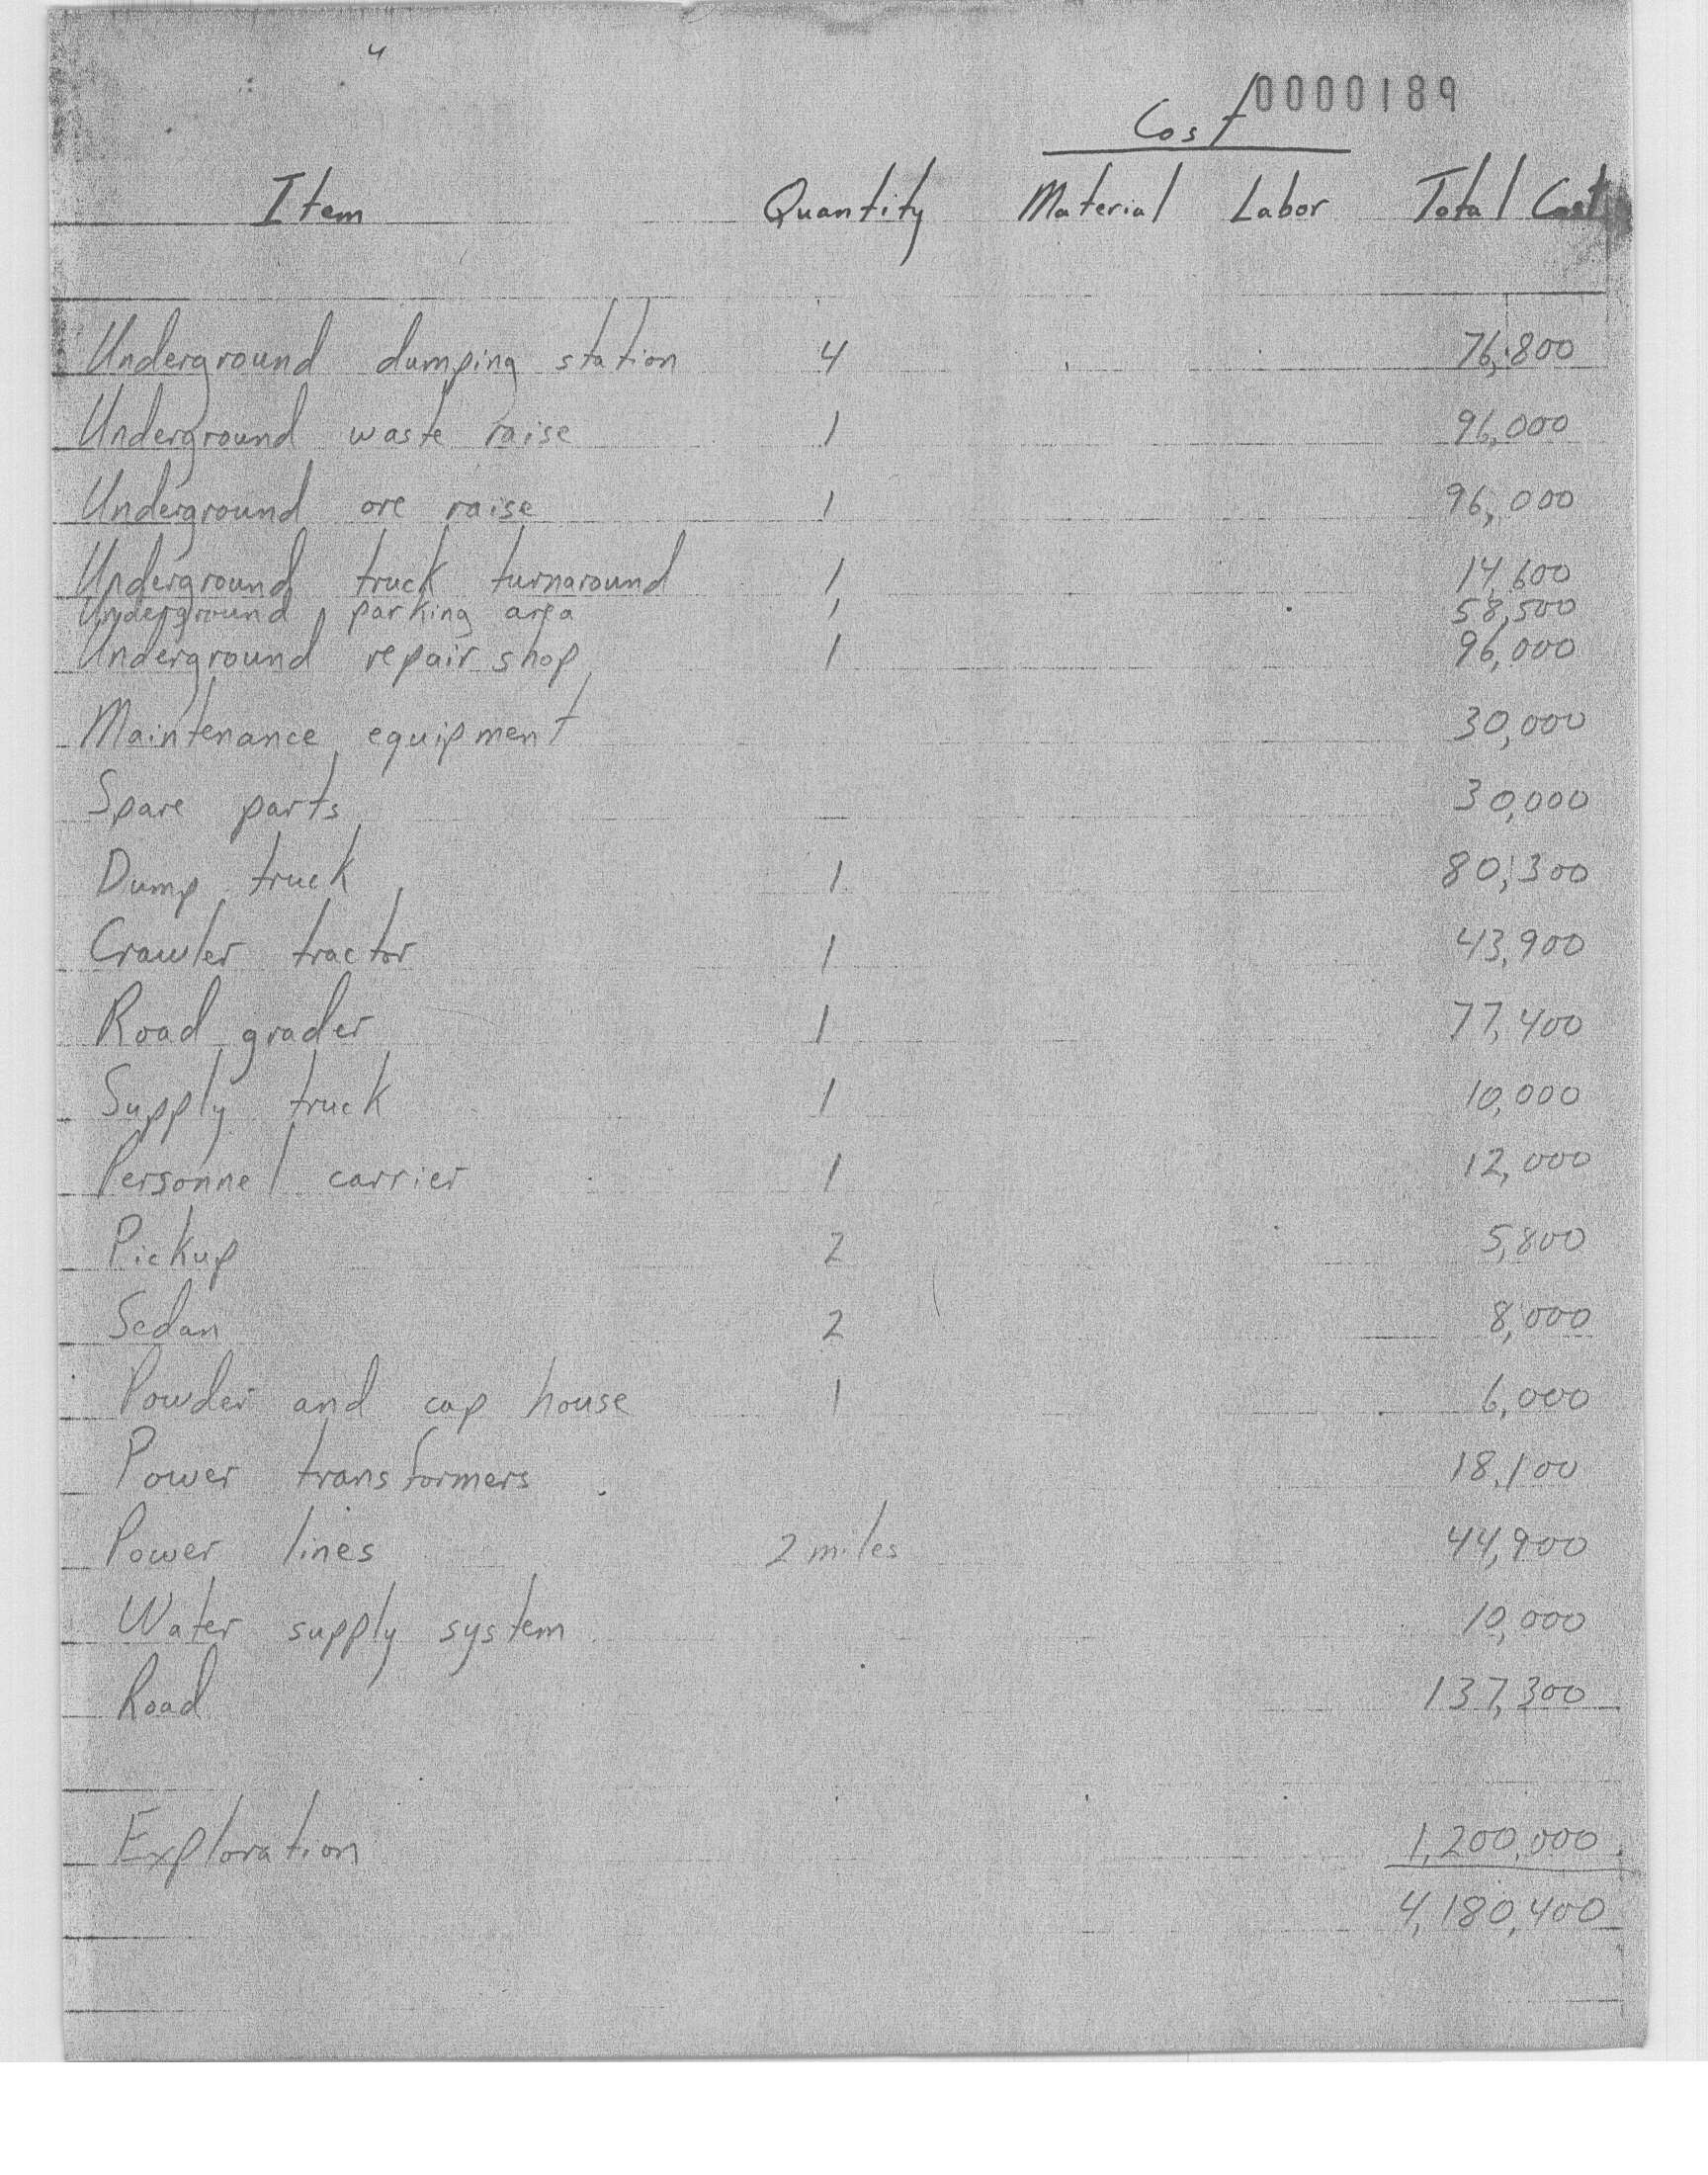 0000189
Cost
Item Quantity Material Labor Total Cost
Underground dumping station 4 76,800
Underground waste raise 1 96,000
Underground ore raise 1 96,000
Underground truck turnaround 1 14,600
Underground parking area 1 58,500
Underground repair shop 1 96,000
Maintenance equipment 30,000
Spare parts 30,000
Dump truck 1 80,300
Crawler tractor 1 43,900
Road grader 1 77,400
Supply truck 1 10,000
Personnel carrier 1 12,000
Pickup 2 5,800
Sedan 2 8,000
Powder and cap house 1 6,000
Power transformers 18,100
Power lines 2 miles 44,900
Water supply system 10,000
Road 137,300
Exploration 1,200,000
4,180,400